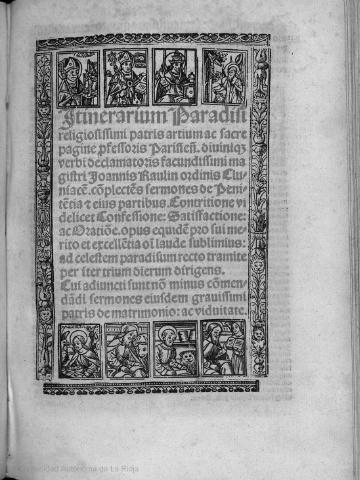 Itinerarium Paradisi
religiosissimi patris artium ac sacre
pagine p̄fessoris Parisieñ. diuiniq;
verbi declamatoris facundissimi ma
gistri Joannis Raulin ordinis Clu
niacē. cōplectēs sermones de Peni
tētia ⁊ eius partibus. Contritione vi
delicet Confessione: Satisfactione:
ac Oratiōe. opus equidē pro sui me
rito et excellētia oī laude sublimius:
ad celestem paradisum recto tramite
per iter trium dierum dirigens.
Cui adiuncti sunt nō minus cōmen
dādi sermones eiusdem grauissimi
patris de matrimonio: ac viduitate.
Comunidad Autónoma de La Rioja